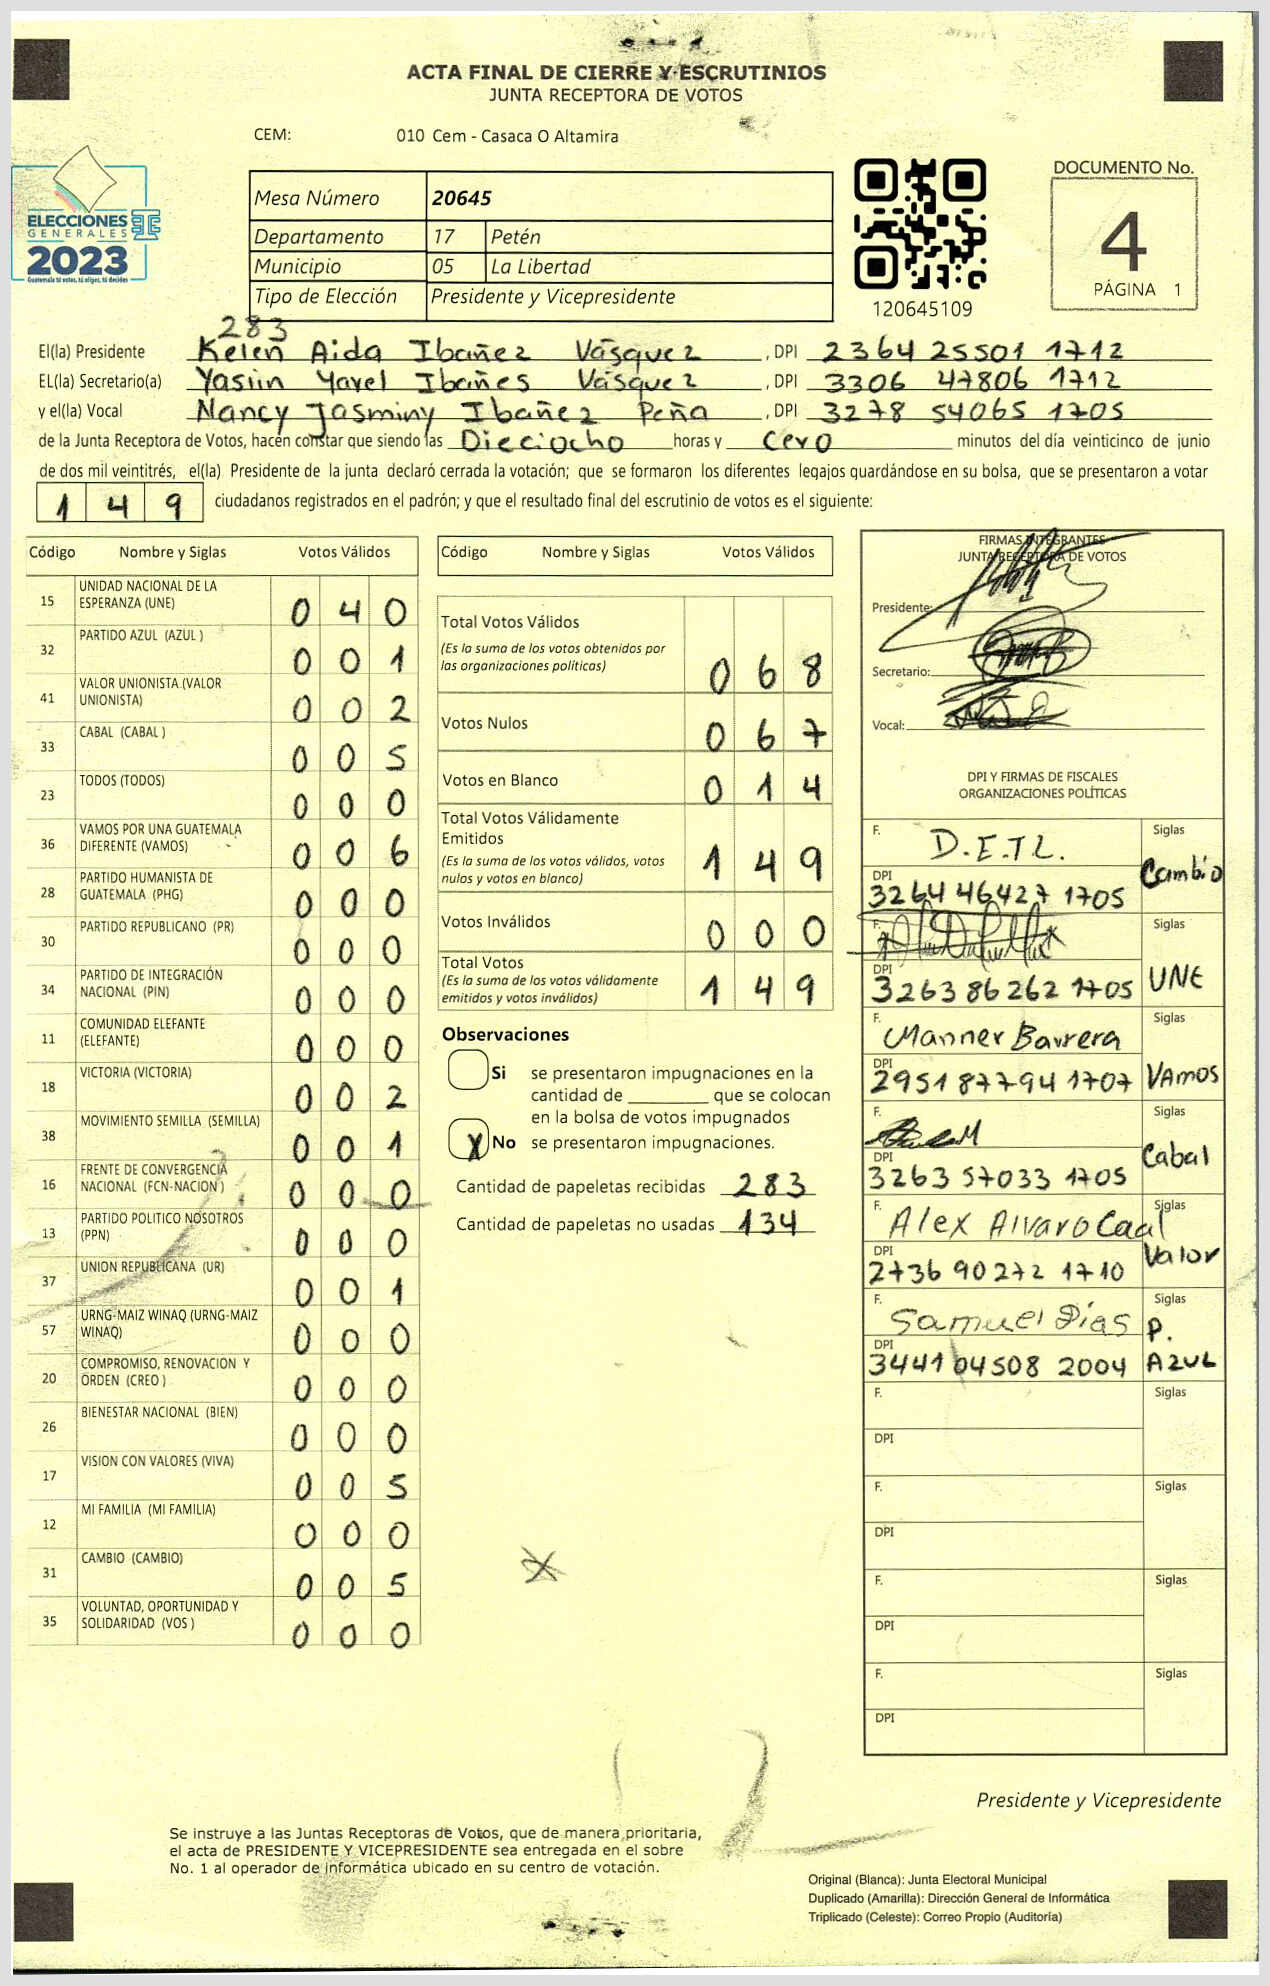 ACTA FINAL DE CIERRE Y ESCRUTINIOS
JUNTA RECEPTORA DE VOTOS
CEM: 010 Cem - Casaca O Altamira
ELECCIONES
GENERALES
2023
Guatemala tú votas, tú eliges, tú decides
Mesa Número 20645
Departamento 17 Petén
Municipio 05 La Libertad
Tipo de Elección Presidente y Vicepresidente
120645109
DOCUMENTO No.
4
PÁGINA 1
283
El(la) Presidente Kelen Aida Ibañez Vásquez , DPI 2364 25501 1712
EL(la) Secretario(a) Yasiin Yavel Ibañes Vásquez , DPI 3306 47806 1712
y el(la) Vocal Nancy Jasminy Ibañez Peña , DPI 3278 54065 1705
de la Junta Receptora de Votos, hacen constar que siendo las Dieciocho horas y Cero minutos del día veinticinco de junio
de dos mil veintitrés, el(la) Presidente de la junta declaró cerrada la votación; que se formaron los diferentes legajos quardándose en su bolsa, que se presentaron a votar
1 4 9 ciudadanos registrados en el padrón; y que el resultado final del escrutinio de votos es el siguiente:
Código Nombre y Siglas Votos Válidos
15 UNIDAD NACIONAL DE LA ESPERANZA (UNE) 0 4 0
32 PARTIDO AZUL (AZUL ) 0 0 1
41 VALOR UNIONISTA (VALOR UNIONISTA) 0 0 2
33 CABAL (CABAL ) 0 0 5
23 TODOS (TODOS) 0 0 0
36 VAMOS POR UNA GUATEMALA DIFERENTE (VAMOS) 0 0 6
28 PARTIDO HUMANISTA DE GUATEMALA (PHG) 0 0 0
30 PARTIDO REPUBLICANO (PR) 0 0 0
34 PARTIDO DE INTEGRACIÓN NACIONAL (PIN) 0 0 0
11 COMUNIDAD ELEFANTE (ELEFANTE) 0 0 0
18 VICTORIA (VICTORIA) 0 0 2
38 MOVIMIENTO SEMILLA (SEMILLA) 0 0 1
16 FRENTE DE CONVERGENCIA NACIONAL (FCN-NACION ) 0 0 0
13 PARTIDO POLITICO NOSOTROS (PPN) 0 0 0
37 UNION REPUBLICANA (UR) 0 0 1
57 URNG-MAIZ WINAQ (URNG-MAIZ WINAQ) 0 0 0
20 COMPROMISO, RENOVACION Y ORDEN (CREO ) 0 0 0
26 BIENESTAR NACIONAL (BIEN) 0 0 0
17 VISION CON VALORES (VIVA) 0 0 5
12 MI FAMILIA (MI FAMILIA) 0 0 0
31 CAMBIO (CAMBIO) 0 0 5
35 VOLUNTAD, OPORTUNIDAD Y SOLIDARIDAD (VOS ) 0 0 0
Código Nombre y Siglas Votos Válidos
Total Votos Válidos
(Es la suma de los votos obtenidos por
las organizaciones políticas) 0 6 8
Votos Nulos 0 6 7
Votos en Blanco 0 1 4
Total Votos Válidamente
Emitidos
(Es la suma de los votos válidos, votos
nulos y votos en blanco) 1 4 9
Votos Inválidos 0 0 0
Total Votos
(Es la suma de los votos válidamente
emitidos y votos inválidos) 1 4 9
Observaciones
Si se presentaron impugnaciones en la
cantidad de ________ que se colocan
en la bolsa de votos impugnados
X No se presentaron impugnaciones.
Cantidad de papeletas recibidas 283
Cantidad de papeletas no usadas 134
FIRMAS INTEGRANTES
JUNTA RECEPTORA DE VOTOS
Presidente:
Secretario:
Vocal:
DPI Y FIRMAS DE FISCALES
ORGANIZACIONES POLÍTICAS
F. D.E.T.L. Siglas
DPI 3264 46427 1705 Cambio
F. Siglas
DPI 3263 86262 1705 UNE
F. Manner Barrera Siglas
DPI 2951 87794 1707 VAMOS
F. Siglas
DPI 3263 57033 1705 Cabal
F. Alex Alvaro Caal Siglas
DPI 2736 90272 1710 Valor
F. Samuel Días Siglas
DPI 3441 04508 2004 P. AZUL
F. Siglas
DPI
F. Siglas
DPI
F. Siglas
DPI
F. Siglas
DPI
Presidente y Vicepresidente
Se instruye a las Juntas Receptoras de Votos, que de manera prioritaria,
el acta de PRESIDENTE Y VICEPRESIDENTE sea entregada en el sobre
No. 1 al operador de informática ubicado en su centro de votación.
Original (Blanca): Junta Electoral Municipal
Duplicado (Amarilla): Dirección General de Informática
Triplicado (Celeste): Correo Propio (Auditoría)